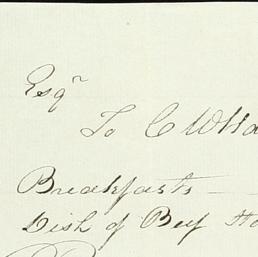 Esqr
To C W
Breakfasts
Dish of Beef